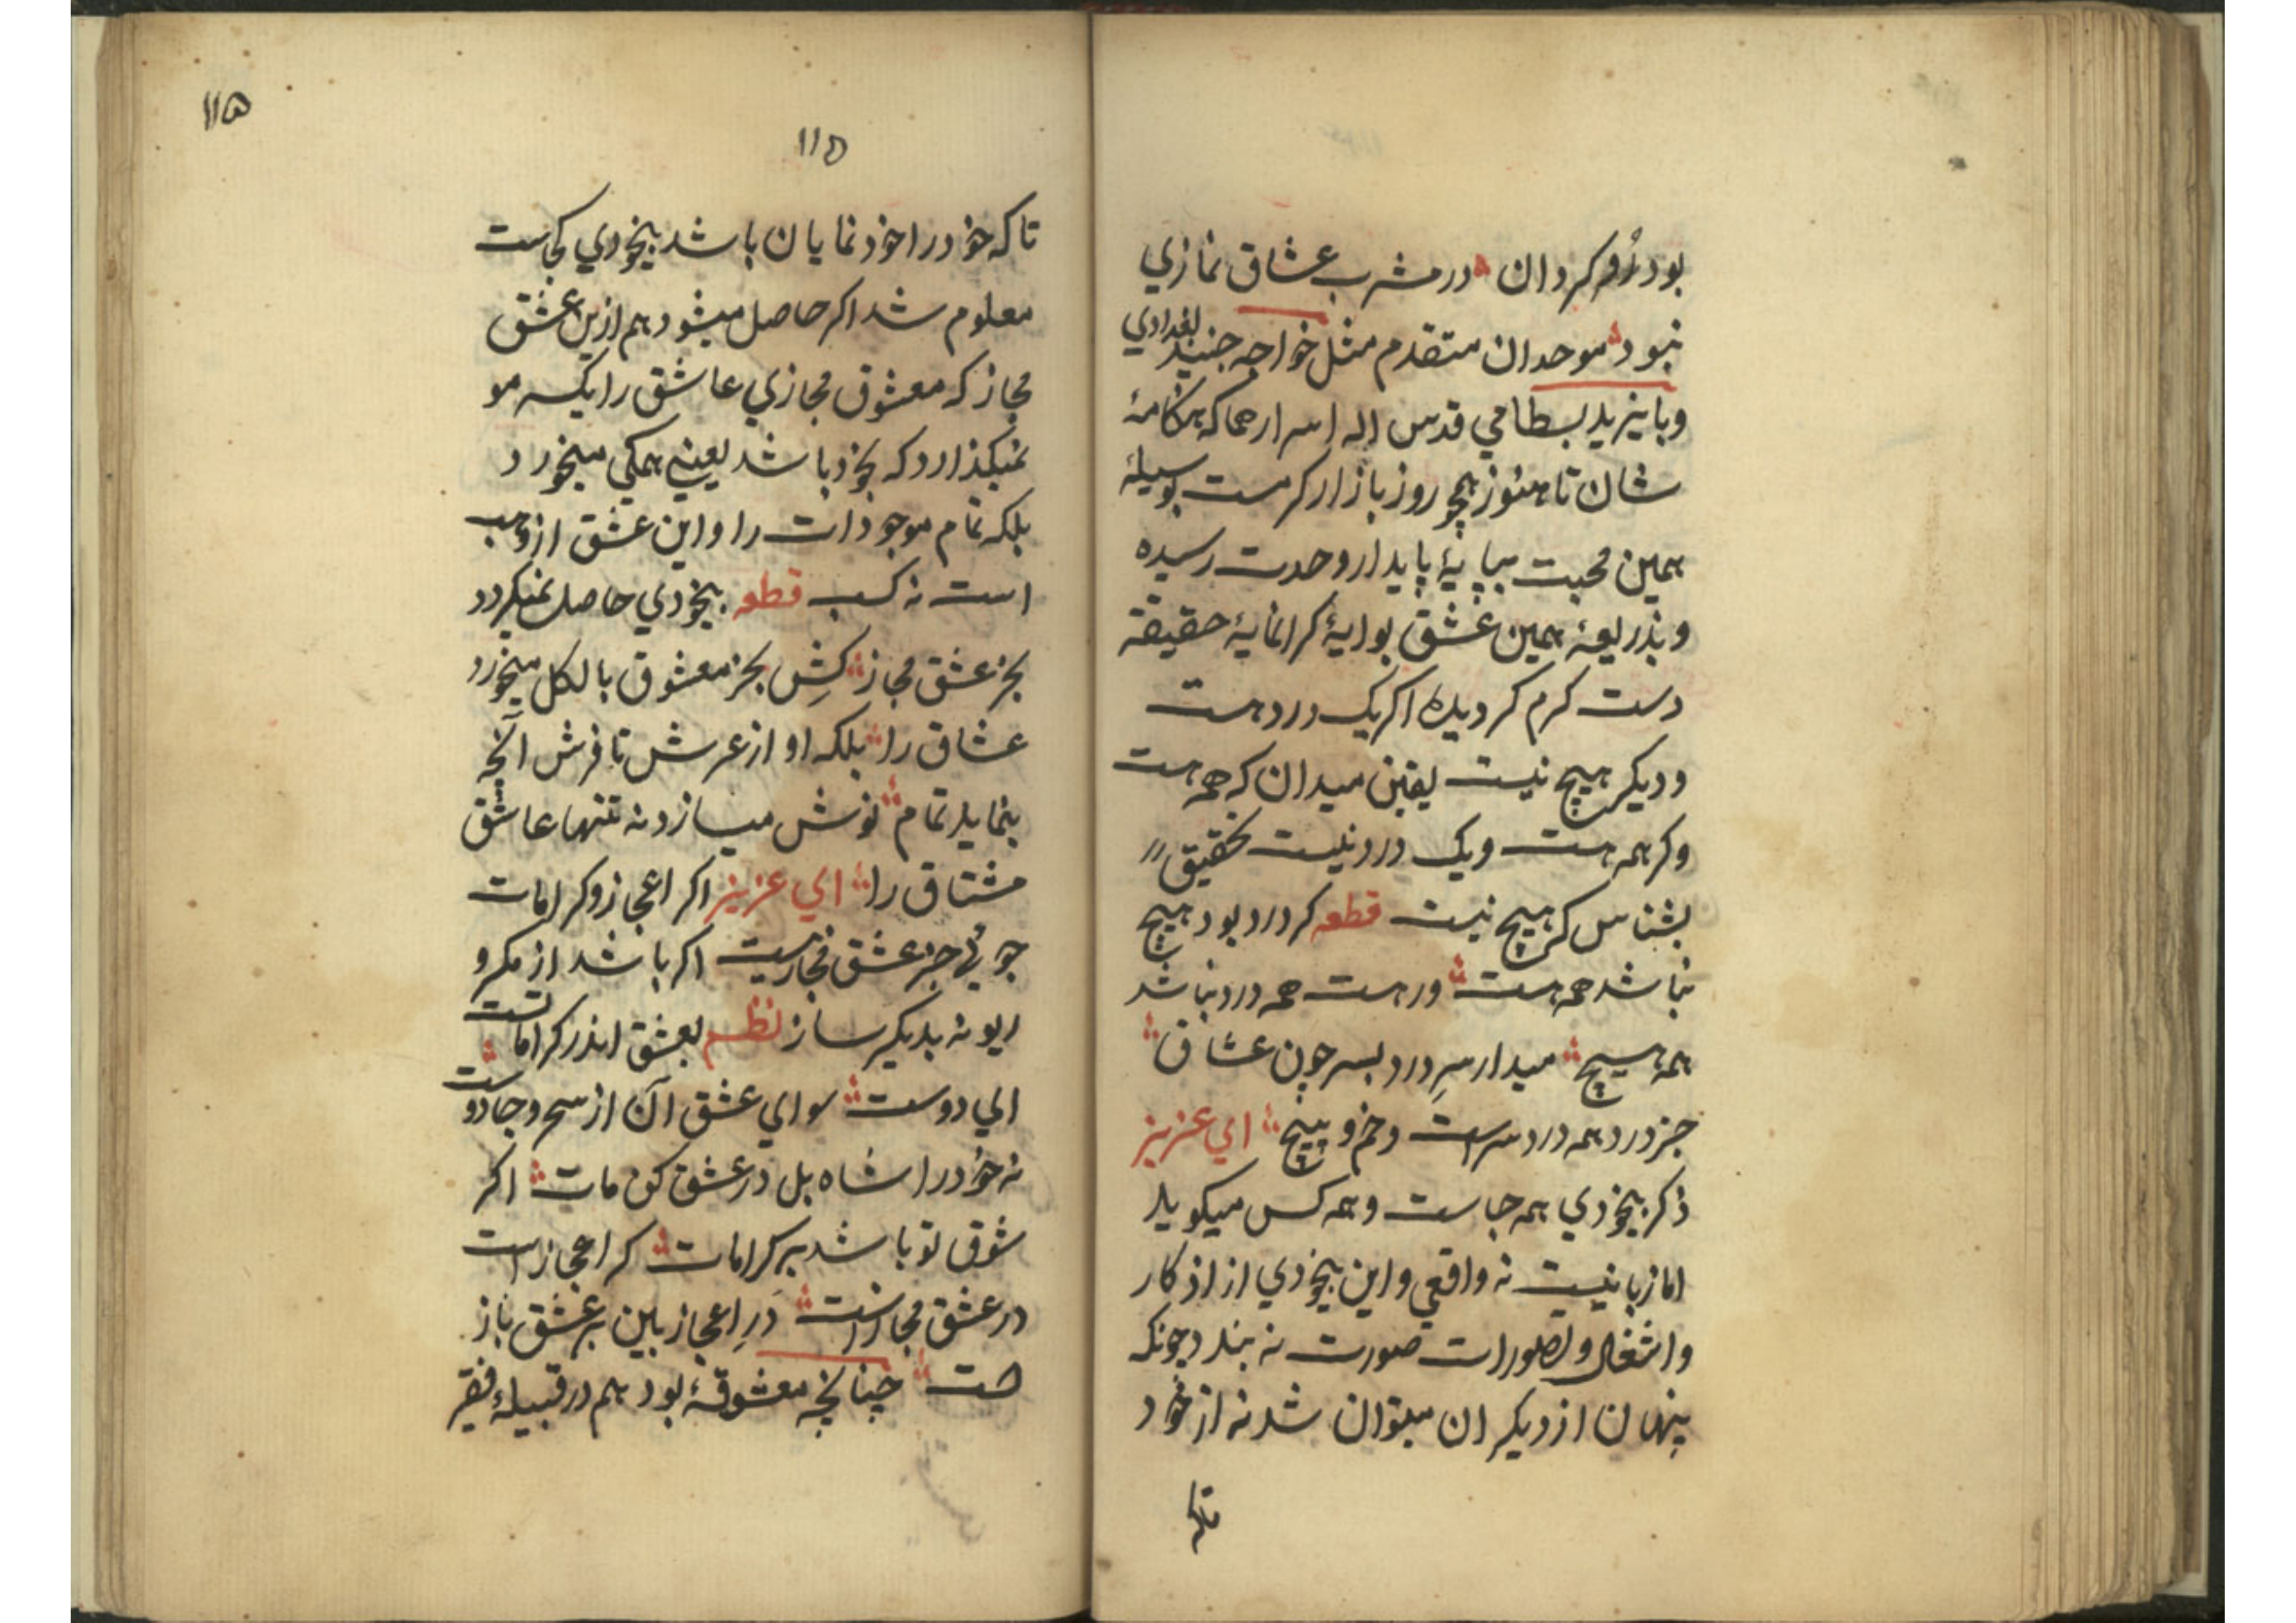 بود رُو کردان در مشرب عشاق نمازي
نبود موحدان متقدم مثل خواجه جنید بغدادي
و بایزید بسطامي قدس اله اسرارهما که هنکامهٔ
شان تا هنوز همچو روز بازار کرمست بوسیلهٔ
همین محبت بپایهٔ پایدار وحدت رسیده
و بذریعهٔ همین عشق بوایهٔ کرانمایهٔ حقیقة
دست کرم کردیده اکر یک درد هست
و دیکر هیچ نیست یقین میدان که همه هست
وکر همه هست و یک درد نیست تحقیق
بشناس که هیچ نیست قطعه کر درد بود هیچ
نباشد همه هست ور هست همه درد نباشد
همه هیچ میدار سرِ درد بسر چون عشاق
جز درد همه درد سرست و خم و پیچ اي عزیز
ذکر بیخودي همه جاست و همه کس میکوید
اما زبانیست نه واقعي و این بیخودي از اذکار
و اشغال و تصورات صورت نه بندد چونکه
پنهان از دیکران میتوان شد نه از خود
تاکه
١١۵
١١۵
تا که خود را خود نمایان باشد بیخودي کجاست
معلوم شد اکر حاصل میشود هم ازین عشق
مجاز که معشوق مجازي عاشق را یکسر مو
نمیکذارد که بخود باشد یعنے همکي میخورد
بلکه تمام موجودات را و این عشق از وهب
است نه کسب قطعه بیخودي حاصل نمیکردد
بجز عشق مجاز کِش بجز معشوق بالکل میخورد
عشاق را بلکه او از عرش تا فرش آنچه
بنماید تمام نوش میسازد نه تنها عاشق
مشتاق را اي عزیز اکر اعجاز و کرامات
جوئي جز عشق مجاز نیست اکر باشد از مکر و
ریو نه بدیکر ساز نظم بعشق اندر کراماتست
اي دوست سواي عشق آن از سحر و جادوست
نه خود را شاه بل در عشق کن مات اکر
شوق تو باشد بر کرامات کر اعجازاست
در عشق مجازاست دَرِ اعجاز بین بر عشق باز
است چنانچه معشوقهٔ بود هم در قبیلهٔ فقیر